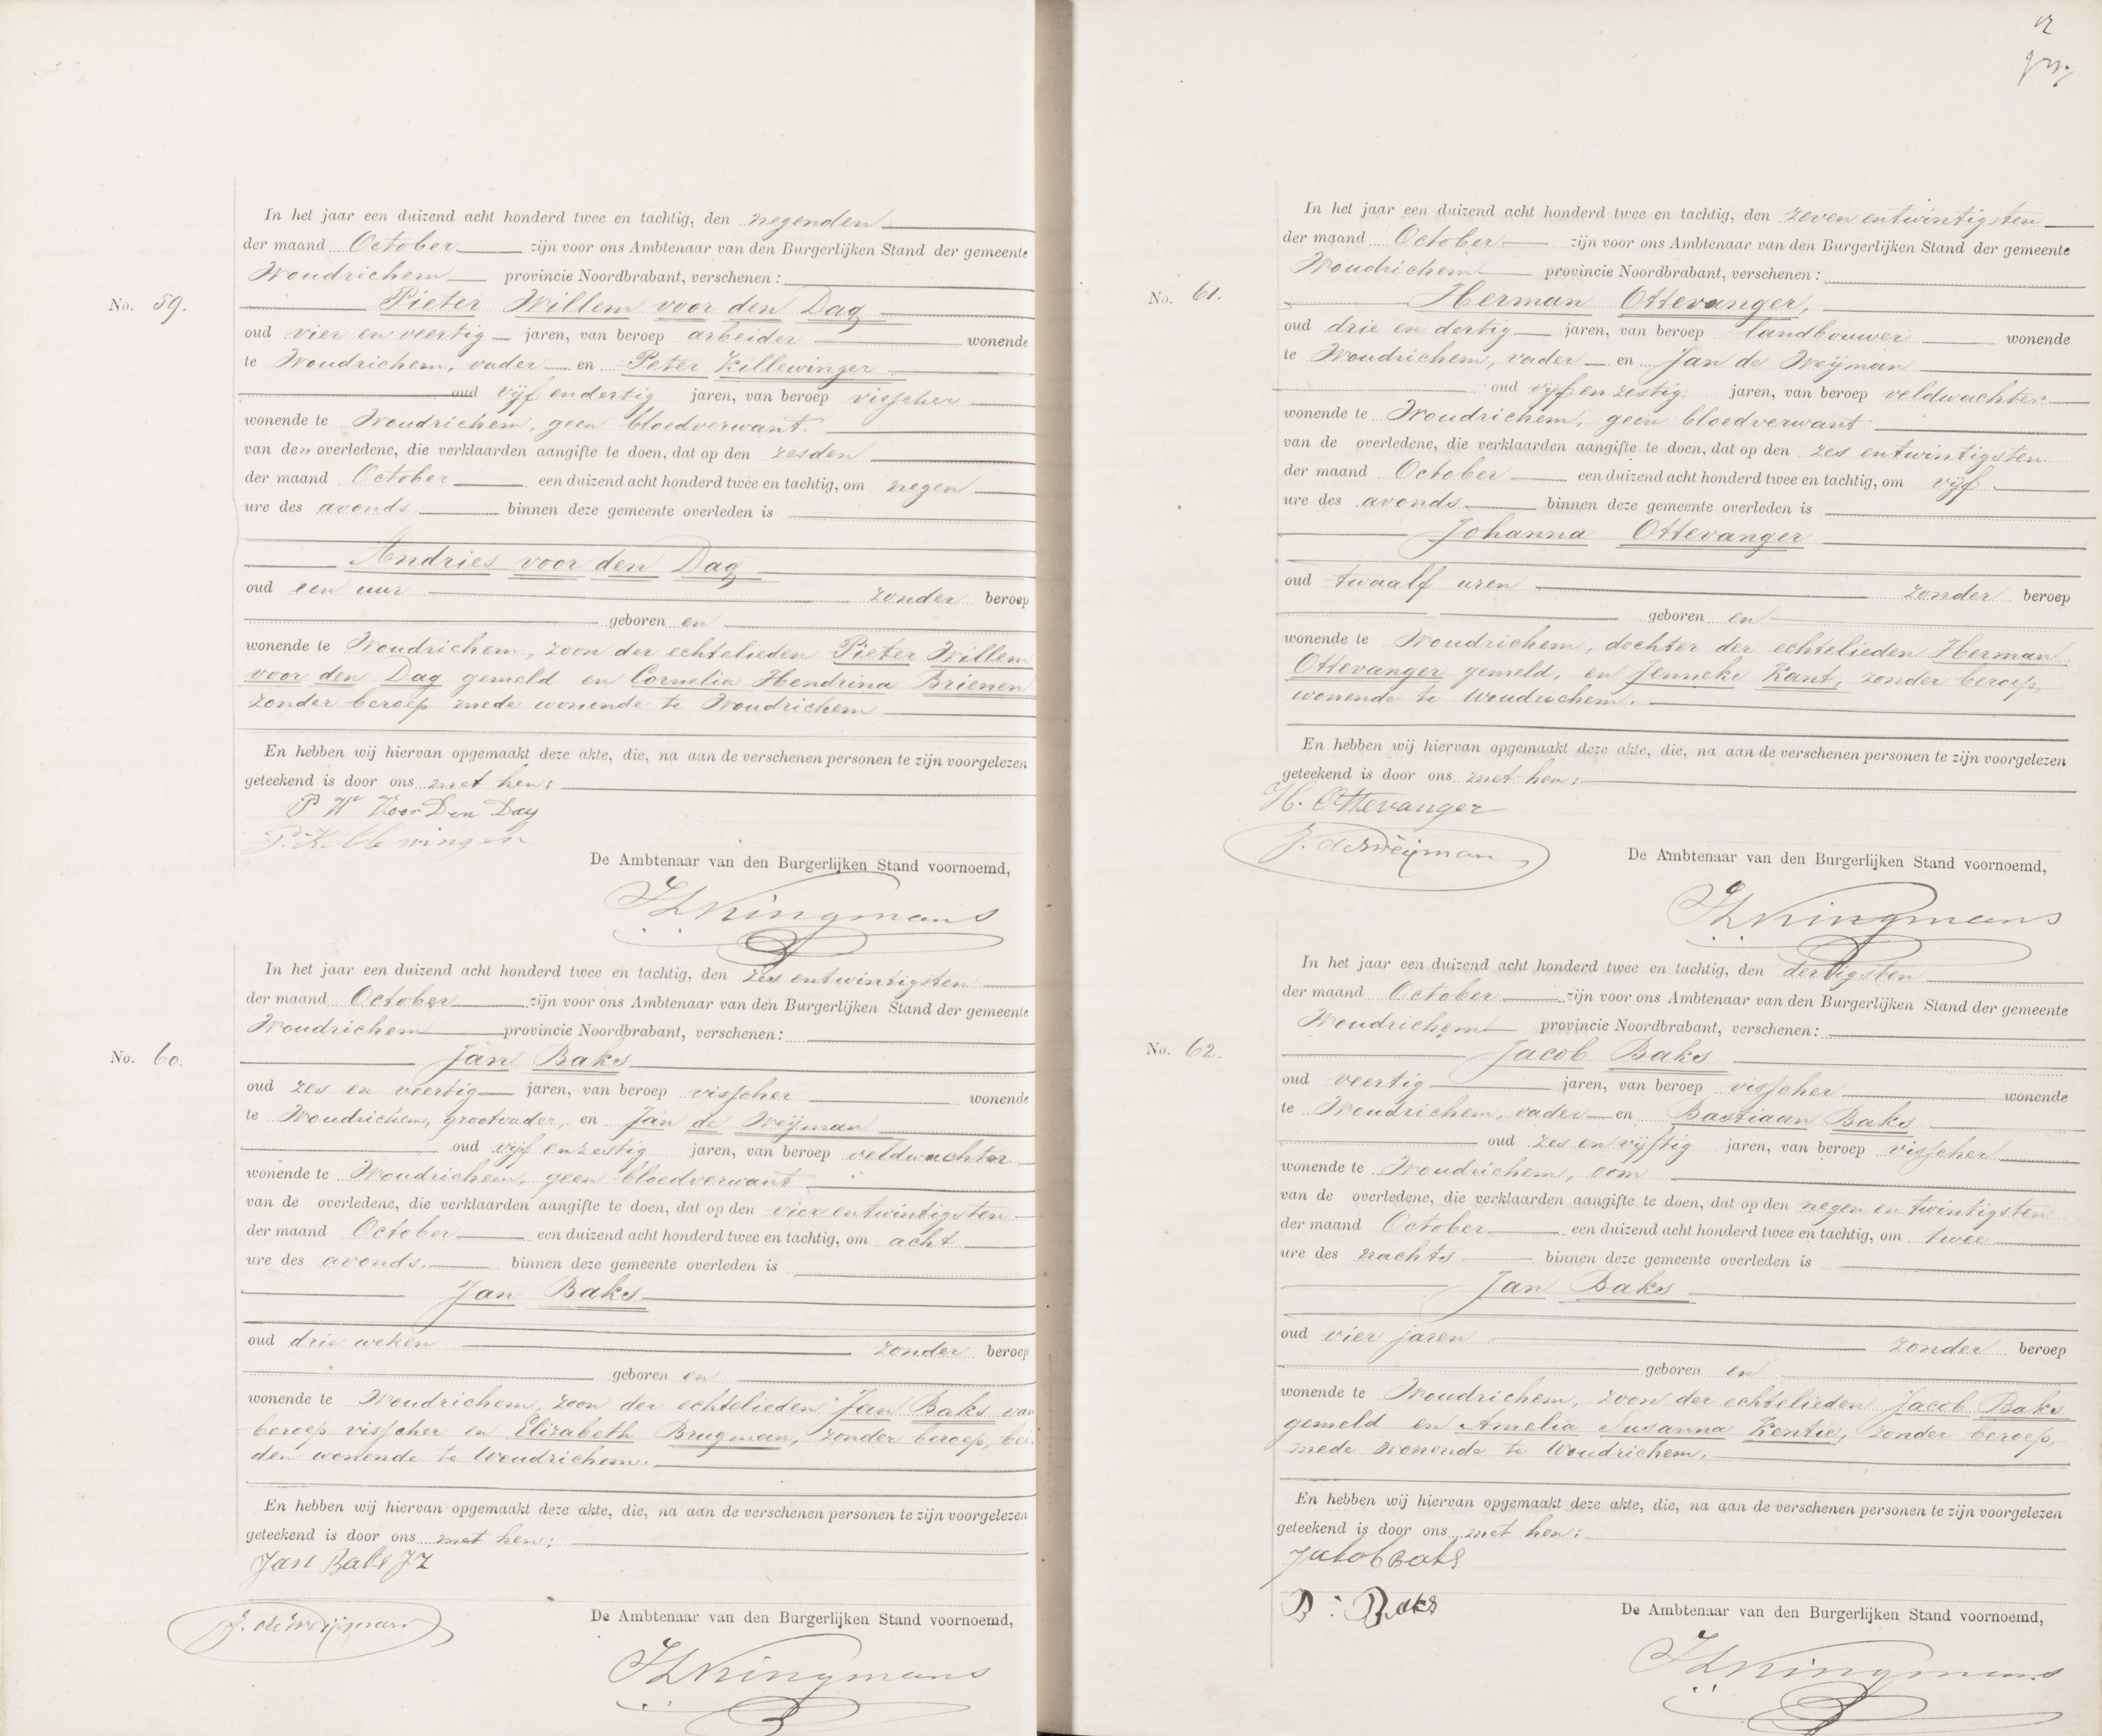 In het jaar een duizend acht honderd twee en tachtig, den negenden
der maand October zijn voor ons Ambtenaar van den Burgerlijken Stand der gemeente
Woudrichem provincie Noordbrabant, verschenen:
No. 59.
Pieter Willem voor den Dag
oud vier en veertig jaren, van beroep arbeider wonende
te Woudrichem, vader en Peter Killewinger
oud vijf en dertig jaren, van beroep visscher
wonende te Woudrichem, geen bloedverwant.
van den overledene, die verklaarden aangifte te doen, dat op den zesden
der maand October een duizend acht honderd twee en tachtig, om negen
ure des avonds binnen deze gemeente overleden is
Andries voor den Dag
oud een uur zonder beroep
geboren en
wonende te Woudrichem, zoon der echtelieden Pieter Willem
voor den Dag gemeld en Cornelia Hendrina Brienen
zonder beroep mede wonende te Woudrichem
En hebben wij hiervan opgemaakt deze akte, die, na aan de verschenen personen te zijn voorgelezen
geteekend is door ons met hen:
P W Voor Den Dag
P. Killewinger
De Ambtenaar van den Burgerlijken Stand voornoemd,
Kingmans
In het jaar een duizend acht honderd twee en tachtig, den zes entwintigsten
der maand October zijn voor ons Ambtenaar van den Burgerlijken Stand der gemeente
Woudrichem provincie Noordbrabant, verschenen:
No. 60.
Jan Baks
oud zes en veertig jaren, van beroep visscher wonende
te Woudrichem, grootvader, en Jan de Weijman
oud vijf en zestig jaren, van beroep veldwachter
wonende te Woudrichem, geen bloedverwant
van de overledene, die verklaarden aangifte te doen, dat op den vier entwintigsten
der maand October een duizend acht honderd twee en tachtig, om acht
ure des avonds. binnen deze gemeente overleden is
Jan Baks
oud drie weken zonder beroep
geboren en
wonende te Woudrichem, zoon der echtelieden Jan Baks van
beroep visscher en Elizabeth Brugman, zonder beroep, bei
den wonende te Woudrichem.
En hebben wij hiervan opgemaakt deze akte, die, na aan de verschenen personen te zijn voorgelezen
geteekend is door ons met hen:
Jan Baks JZ
J. de Weijman
De Ambtenaar van den Burgerlijken Stand voornoemd,
Kingmans
In het jaar een duizend acht honderd twee en tachtig, den zeven entwintigsten
der maand October zijn voor ons Ambtenaar van den Burgerlijken Stand der gemeente
Woudrichem provincie Noordbrabant, verschenen:
No. 61.
Herman Ottevanger,
oud drie en dertig jaren, van beroep landbouwer wonende
te Woudrichem, vader en Jan de Weijman
oud vijf en zestig jaren, van beroep veldwachter
wonende te Woudrichem, geen bloedverwant
van de overledene, die verklaarden aangifte te doen, dat op den zes entwintigsten
der maand October een duizend acht honderd twee en tachtig, om vijf
ure des avonds binnen deze gemeente overleden is
Johanna Ottevanger
oud twaalf uren zonder beroep
geboren en
wonende te Woudrichem, dochter der echtelieden Herman
Ottevanger gemeld, en Jenneke Kant, zonder beroep,
wonende te Woudrichem.
En hebben wij hiervan opgemaakt deze akte, die, na aan de verschenen personen te zijn voorgelezen
geteekend is door ons met hen:
H. Ottevanger
J. de Weijman
De Ambtenaar van den Burgerlijken Stand voornoemd,
Kingmans
In het jaar een duizend acht honderd twee en tachtig, den dertigsten
der maand October zijn voor ons Ambtenaar van den Burgerlijken Stand der gemeente
Woudrichem provincie Noordbrabant, verschenen:
No. 62.
Jacob Baks
oud veertig jaren, van beroep visscher wonende
te Woudrichem, vader en Bastiaan Baks
oud zes en vijftig jaren, van beroep visscher
wonende te Woudrichem, oom
van de overledene, die verklaarden aangifte te doen, dat op den negen en twintigsten
der maand October een duizend acht honderd twee en tachtig, om twee
ure des nachts binnen deze gemeente overleden is
Jan Baks
oud vier jaren zonder beroep
geboren en
wonende te Woudrichem, zoon der echtelieden Jacob Baks
gemeld en Amelia Susanna Kentie, zonder beroep,
mede wonende te Woudrichem.
En hebben wij hiervan opgemaakt deze akte, die, na aan de verschenen personen te zijn voorgelezen
geteekend is door ons met hen:
Jacob Baks
B: Baks
De Ambtenaar van den Burgerlijken Stand voornoemd,
Kingmans